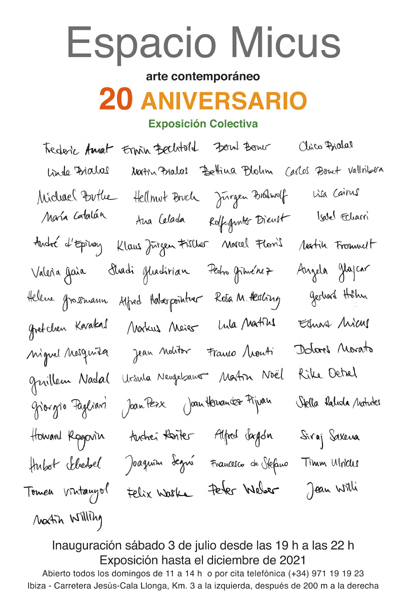 Espacio Micus
arte contemporáneo
20 ANIVERSARIO
Exposición Colectiva
Frederic Amat Erwin Bechtold Bernd Berner Chico Bialas
Linda Bialas Martin Bialas Bettina Blohm Carlos Bonet Vallribera
Michael Buthe Hellmut Bruch Jürgen Brodwolf Lisa Cairns
María Catalán Ana Celada Rolfgunter Dienst Isabel Echarri
André d'Epinay Klaus Jürgen Fischer Marcel Floris Martin Frommelt
Valeria Gaia Shadi Ghadirian Pedro Giménez Angela Glajcar
Helene Grossmann Alfred Haberpointner Rosa M. Hessling Gerhard Höhn
Gretchen Karakas Markus Meier Lula Martins Eduard Micus
Miguel Mosquiza Jean Molitor Franco Monti Dolores Morato
Guillem Nadal Ursula Neugebauer Martin Noël Rike Oehel
Giorgio Pagliari Joan Hernandez Pijuan Stella Matutes
Howard Rogovin Andrei Roiter Alfred Siraj Saxena
Hubert Scheibel Joaquim Segui Francesco de Stefano Timm Ulrichs
Tomeu Vintanyol Felix Waske Peter Weber Jean Willi
Martin Willing
Inauguración sábado 3 de julio desde las 19 h a las 22 h
Exposición hasta el diciembre de 2021
Abierto todos los domingos de 11 a 14 h o por cita telefónica (+34) 971 19 19 23
Ibiza - Carretera Jesús-Cala Llonga, Km. 3 a la izquierda, después de 200 m a la derecha